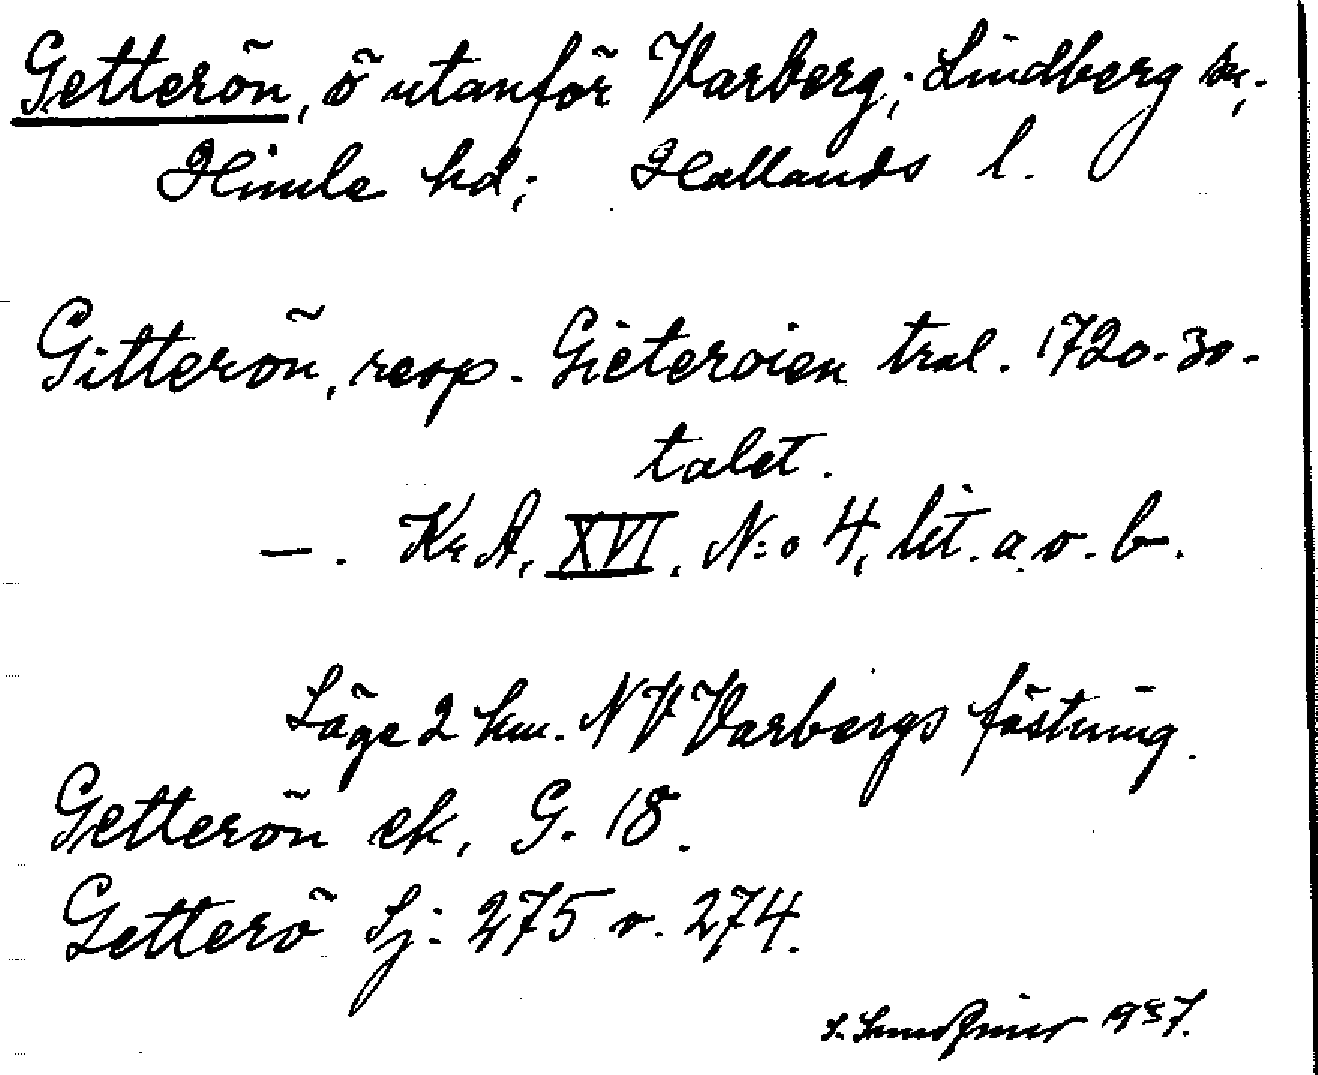 Getterön, ö utanför Varberg; Lindberg sn,
Himle hd; Hallands l.
Gitterön, resp. Gieteroien tral. 1720-30-
talet.
—. Kr A, XVI, N:o 4, lit. a o. b.
Läge 2 km. NV Varbergs fästning.
Getterön ek, G. 18.
Getterö Sj: 275 o. 274.
1937.